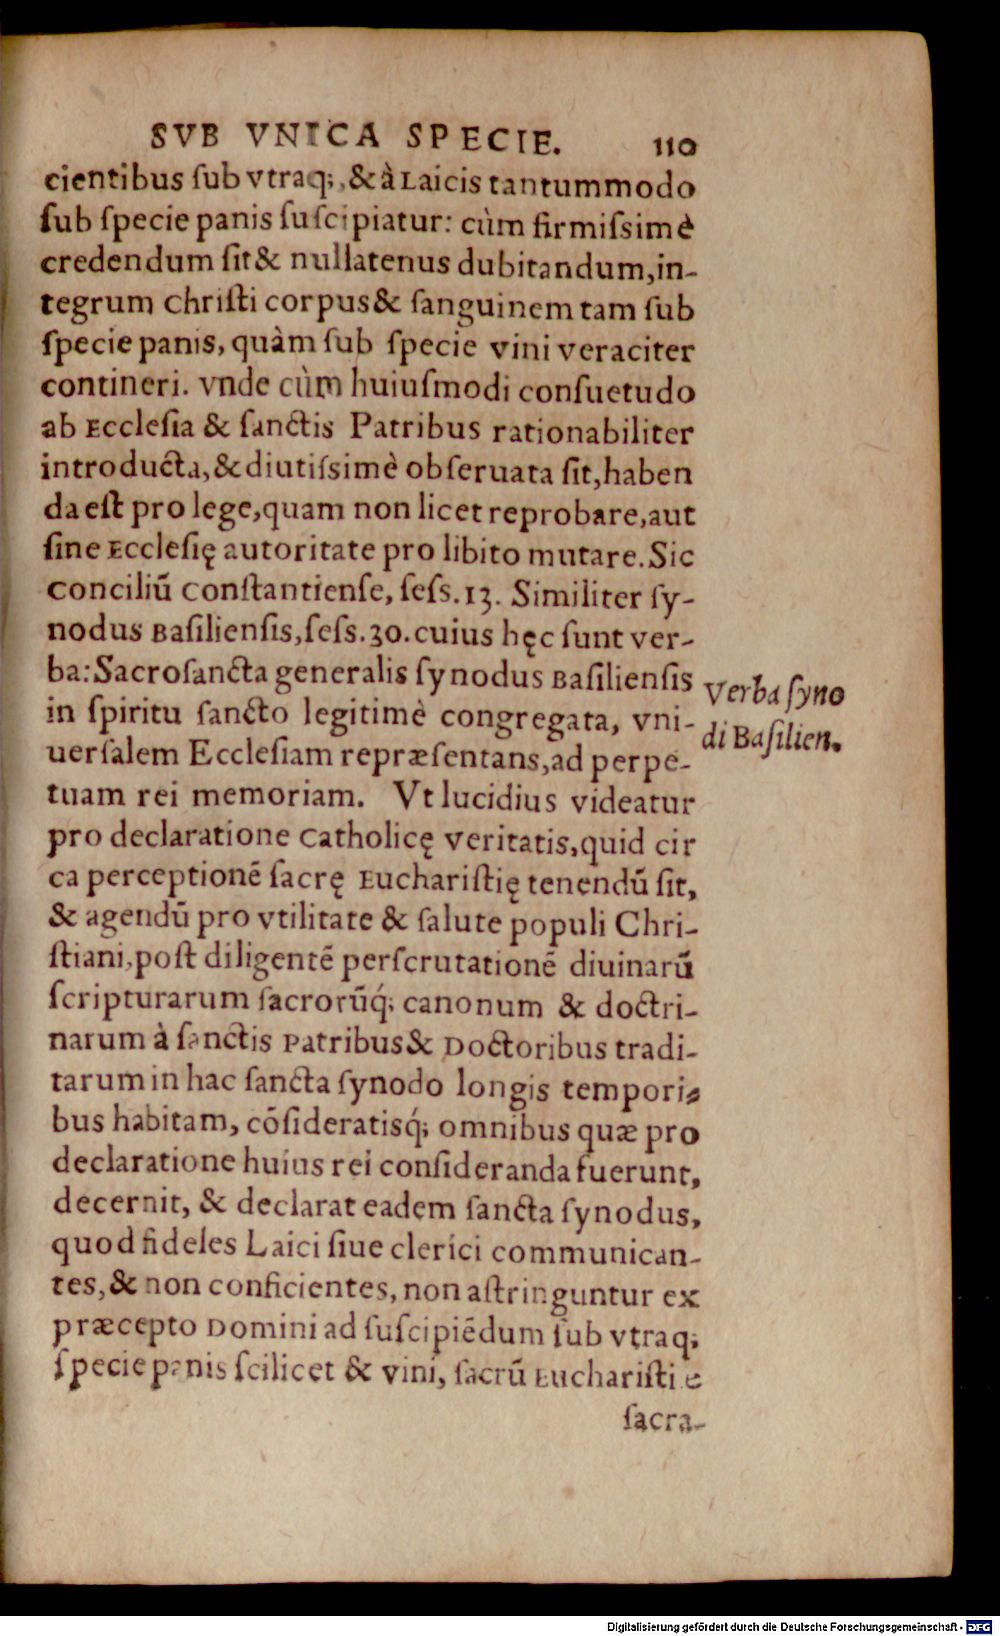 SVB VNICA SPECIE. 110
cientibus ſub vtraq;, & à Laicis tantummodo
ſub ſpecie panis ſuſcipiatur: cùm firmiſsimè
credendum ſit & nullatenus dubitandum, in-
tegrum Chriſti corpus & ſanguinem tam ſub
ſpecie panis, quàm ſub ſpecie vini veraciter
contineri. vnde cùm huiuſmodi conſuetudo
ab Eccleſia & ſanctis Patribus rationabiliter
introducta, & diutiſsimè obſeruata ſit, haben
da eſt pro lege, quam non licet reprobare, aut
ſine Eccleſię autoritate pro libito mutare. Sic
Conciliū Conſtantienſe, ſeſs. 13. Similiter ſy-
nodus Baſilienſis, ſeſs. 30. cuius hęc ſunt ver-
ba: Sacroſancta generalis ſynodus Baſilienſis
in ſpiritu ſancto legitimè congregata, vni-
uerſalem Eccleſiam repræſentans, ad perpe-
tuam rei memoriam. Vt lucidius videatur
pro declaratione Catholicę veritatis, quid cir
ca perceptionē ſacrę Euchariſtię tenendū ſit,
& agendū pro vtilitate & ſalute populi Chri-
ſtiani, poſt diligentē perſcrutationē diuinarū
ſcripturarum ſacrorūq́; canonum & doctri-
narum à ſanctis Patribus & Doctoribus tradi-
tarum in hac ſancta ſynodo longis tempori-
bus habitam, cōſideratisq́; omnibus quæ pro
declaratione huius rei conſideranda fuerunt,
decernit, & declarat eadem ſancta ſynodus,
quod fideles Laici ſiue clerici communican-
tes, & non conficientes, non aſtringuntur ex
præcepto Domini ad ſuſcipiēdum ſub vtraq;
ſpecie panis ſcilicet & vini, ſacrū Euchariſtię
ſacra-
Verba ſyno
di Baſilien.
Digitalisierung gefördert durch die Deutsche Forschungsgemeinschaft - DFG